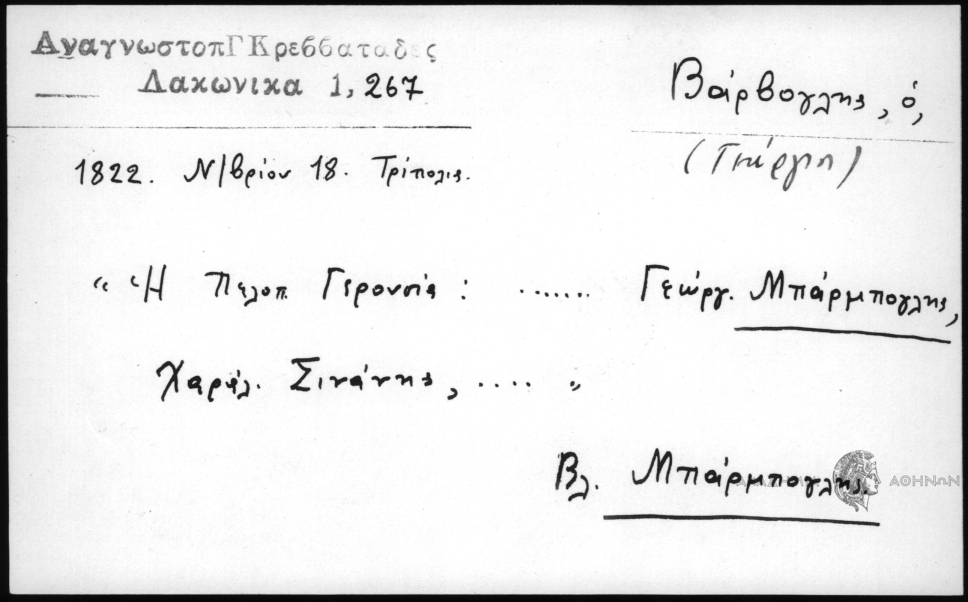 ΑναγνωστοπΓ Κρεββαταδες
Λακωνικα 1, 267
Βάρβογλης, ὁ,
(Γεώργιος)
1822. Ν/βρίου 18. Τρίπολις.
« Ἡ Πελοπ. Γερουσία : ....... Γεώργ. Μπάρμπογλης,
Χαράλ. Σινάνης, .... »
Βλ. Μπάρμπογλης.
ΑΘΗΝΩΝ